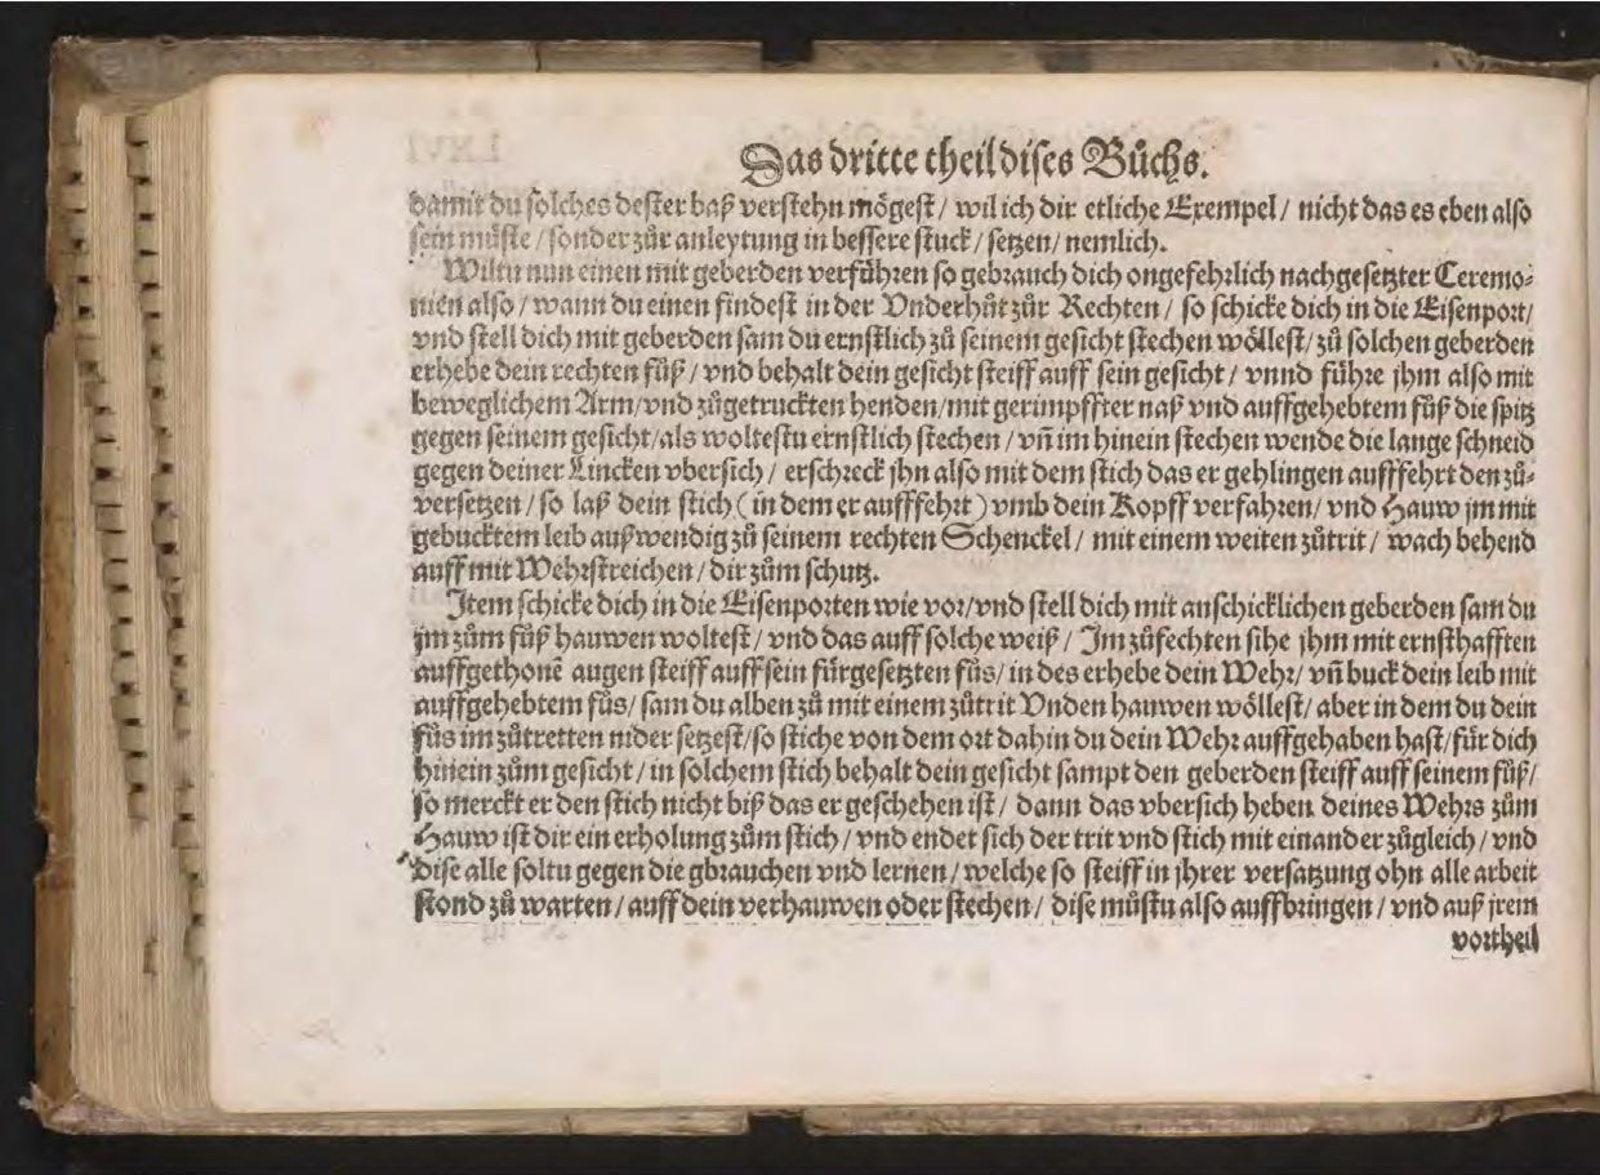 Das dritte theil dises Bůchs.
damit du solches dester baß verstehn mögest / wil ich dir etliche Exempel / nicht das es eben also
sein müste / sonder zůr anleytung in bessere stuck / setzen / nemlich.
Wiltu nun einen mit geberden verführen so gebrauch dich ongefehrlich nachgesetzter Ceremo⸗
nien also / wann du einen findest in der Vnderhůt zůr Rechten / so schicke dich in die Eisenport /
vnd stell dich mit geberden sam du ernstlich zů seinem gesicht stechen wöllest / zů solchen geberden
erhebe dein rechten fůß / vnd behalt dein gesicht steiff auff sein gesicht / vnnd führe jhm also mit
beweglichem Arm / vnd zůgetruckten henden / mit gerimpffter naß vnd auffgehebtem fůß die spitz
gegen seinem gesicht / als woltestu ernstlich stechen / vñ im hinein stechen wende die lange schneid
gegen deiner Lincken vbersich / erschreck jhn also mit dem stich das er gehlingen aufffehrt den zů⸗
versetzen / so laß dein stich ( in dem er aufffehrt ) vmb dein Kopff verfahren / vnd Hauw jm mit
gebucktem leib außwendig zů seinem rechten Schenckel / mit einem weiten zůtrit / wach behend
auff mit Wehrstreichen / dir zům schutz.
Item schicke dich in die Eisenporten wie vor / vnd stell dich mit anschicklichen geberden sam du
jm zům fůß hauwen woltest / vnd das auff solche weiß / Im zůfechten sihe jhm mit ernsthafften
auffgethonē augen steiff auff sein fürgesetzten fůs / in des erhebe dein Wehr / vñ buck dein leib mit
auffgehebtem fůs / sam du alben zů mit einem zůtrit Vnden hauwen wöllest / aber in dem du dein
fůs im zůtretten nider setzest / so stiche von dem ort dahin du dein Wehr auffgehaben hast / für dich
hinein zům gesicht / in solchem stich behalt dein gesicht sampt den geberden steiff auff seinem fůß /
so merckt er den stich nicht biß das er geschehen ist / dann das vbersich heben deines Wehrs zům
Hauw ist dir ein erholung zům stich / vnd endet sich der trit vnd stich mit einander zůgleich / vnd
dise alle soltu gegen die gbrauchen vnd lernen / welche so steiff in jhrer versatzung ohn alle arbeit
stond zů warten / auff dein verhauwen oder stechen / dise můstu also auffbringen / vnd auß jrem
vortheil